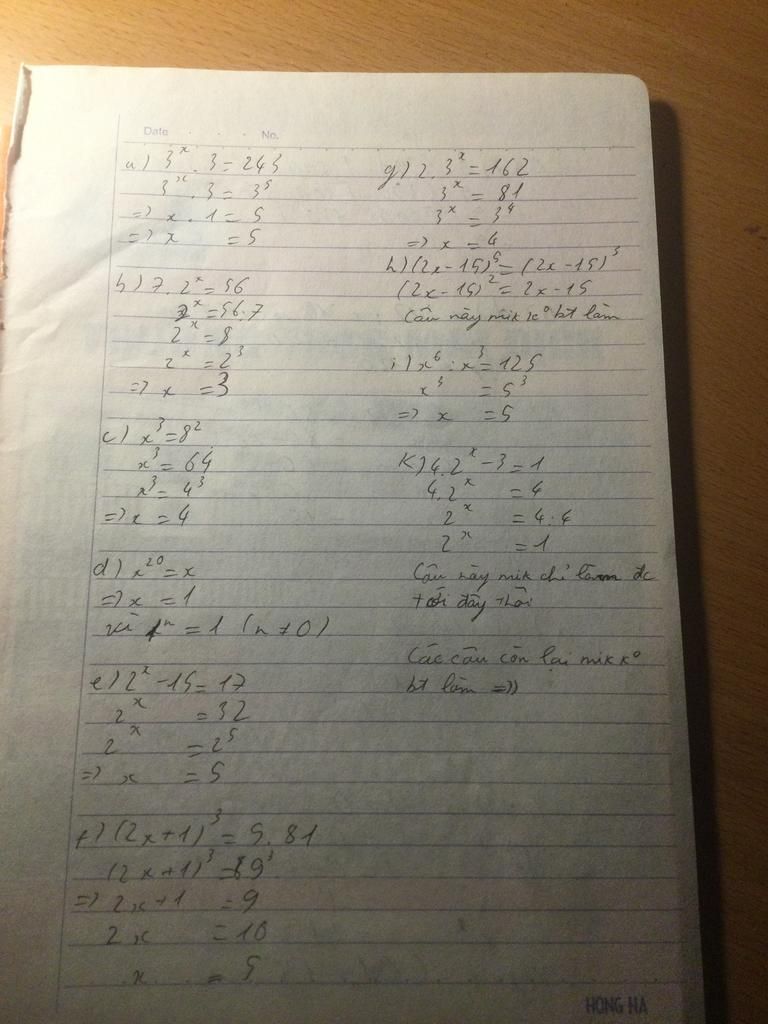 Date . . . No.
a) 3^x . 3 = 243
3^x . 3 = 3^5
=> x . 1 = 5
=> x = 5
b) 7. 2^x = 56
2^x = 56.7
2^x = 8
2^x = 2^3
=> x = 3
c) x^3 = 8^2
x^3 = 64
x^3 = 4^3
=> x = 4
d) x^20 = x
=> x = 1
vì 1^n = 1 (n ≠ 0)
e) 2^x - 15 = 17
2^x = 32
2^x = 2^5
=> x = 5
f) (2x+1)^3 = 9.81
(2x+1)^3 = 9^3
=> 2x+1 = 9
2x = 10
x = 5
g) 2. 3^x = 162
3^x = 81
3^x = 3^4
=> x = 4
h) (2x-15)^5 = (2x-15)^3
(2x-15)^2 = 2x-15
Câu này mik k° bt làm
i) x^6 : x^3 = 125
x^3 = 5^3
=> x = 5
K) 4. 2^x - 3 = 1
4. 2^x = 4
2^x = 4:4
2^x = 1
Câu này mik chỉ làm đc
tới đây thôi
Các câu còn lại mik k°
bt làm =))
HONG HA